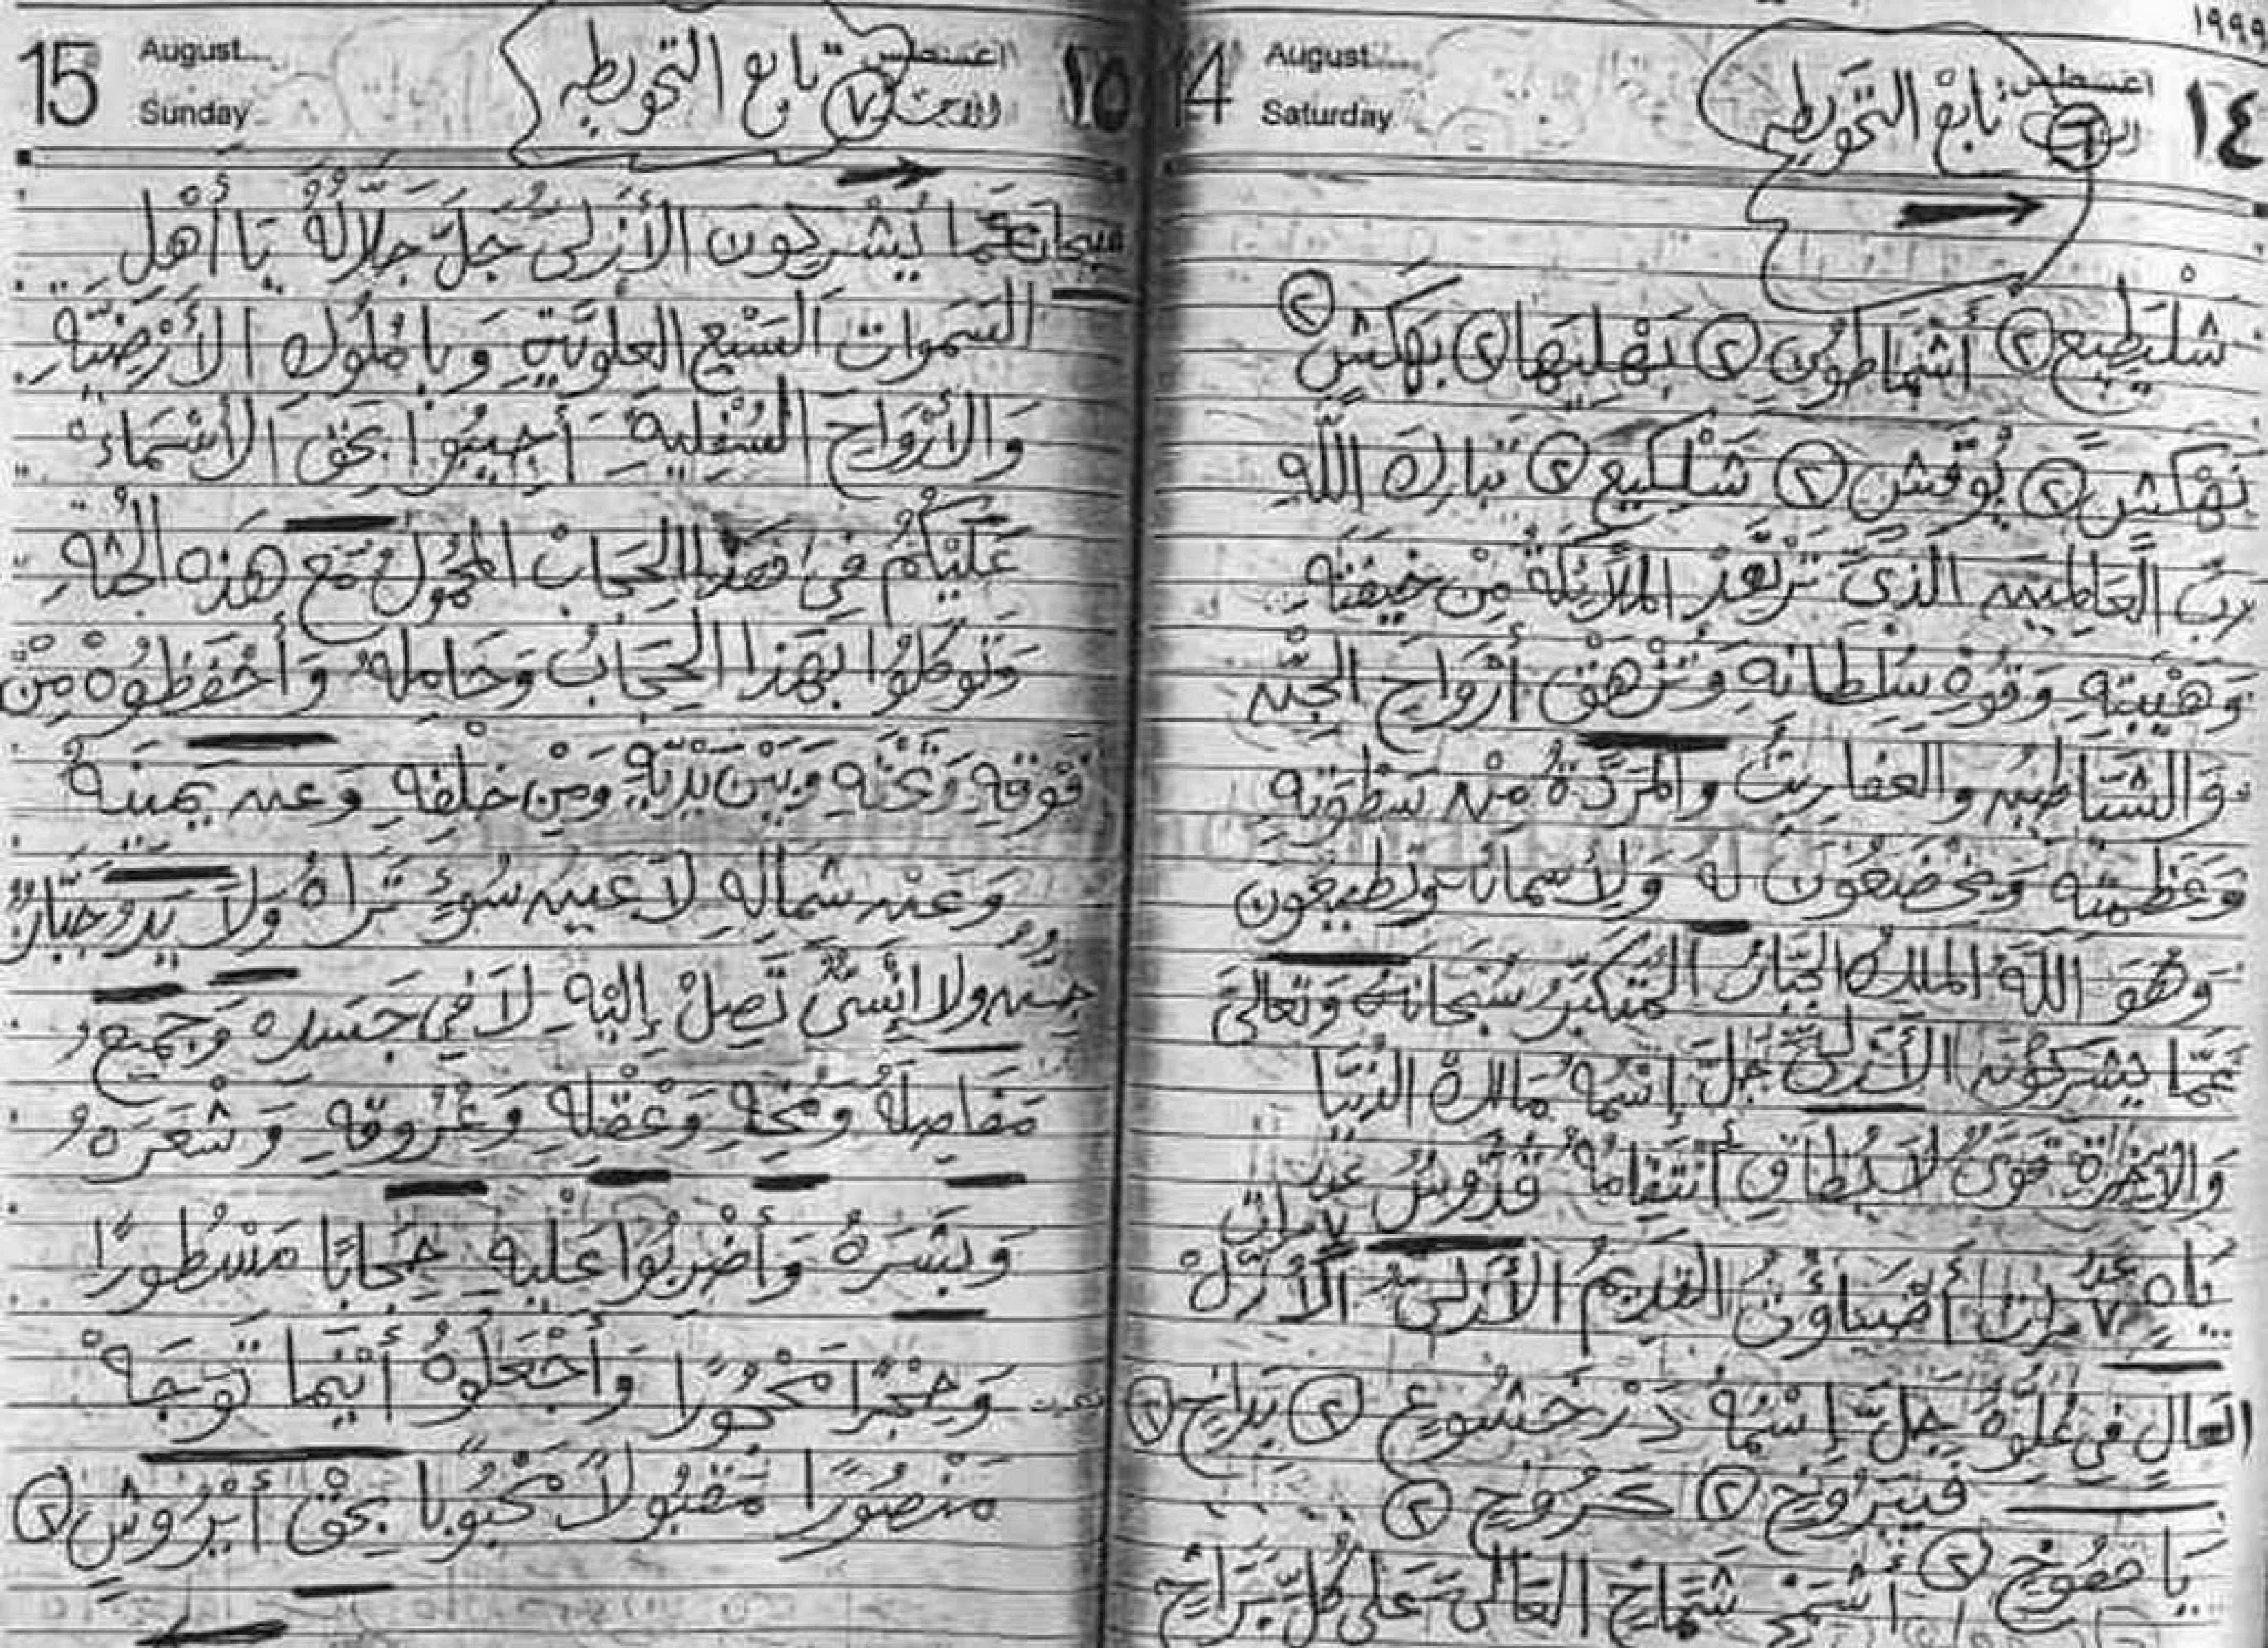 ١٩٩٩
١٤
اغسطس
August
Saturday
14
تابع التحويطه
٦
شلیطیع ٢ أشماطون ٢ بهلیها ٢ بهکش ٢
نهکش ٢ یوقش ٢ شلکیع ٢ تبارك الله
رب العالمين الذي ترتعد الملائكة من خيفته
وهيبته وقوة سلطانه وتزهق أرواح الجن
والشياطين والعفاريت والمردة من سطوته
وعظمته ويخضعون له ولأسمائه ويطيعون
وهو الله الملك الجبار المتكبر سبحانه وتعالى
عما يشركون الأزلي جل إسمه مالك الدنيا
والآخرة قوي لا يطاق أنتقامه قدوس عدد
٧ مرات
ياه عدد ٧ مرات أضباؤت القديم الأزلي الأزل
العال في علوه جل إسمه دزخشوع ٢ بداخ ٢
فيبروخ ٢ كروخ ٢
يا خموخ ٢ أشمخ شماخ العالي على كل براخ
15
August
Sunday
اغسطس
الاحد
١٥
تابع التحويطه
٧
سبحان عما يشركون الأزلي جل جلاله يا أهل
السموات السبع العلوية ويا ملوك الأرضية
والأرواح السفلية أجيبوا بحق الأسماء
عليكم في هذا الحجاب المحمول مع هذه الجثه
وتوكلوا بهذا الحجاب وحامله وأحفظوه من
فوقه وتحته وبين يديه ومن خلفه وعن يمينه
وعن شماله لا عين سوء تراه ولا يد جبار
جن ولا إنسي تصل إليه لا في جسده وجميع
مفاصله ومخه وعضله وعروقه وشعره
وبشره وأضربوا عليه حجابا مسطورا
وحجرا محجورا وأجعلوه أينما توجه
منصورا مقبولا محبوبا بحق أيروش ٢